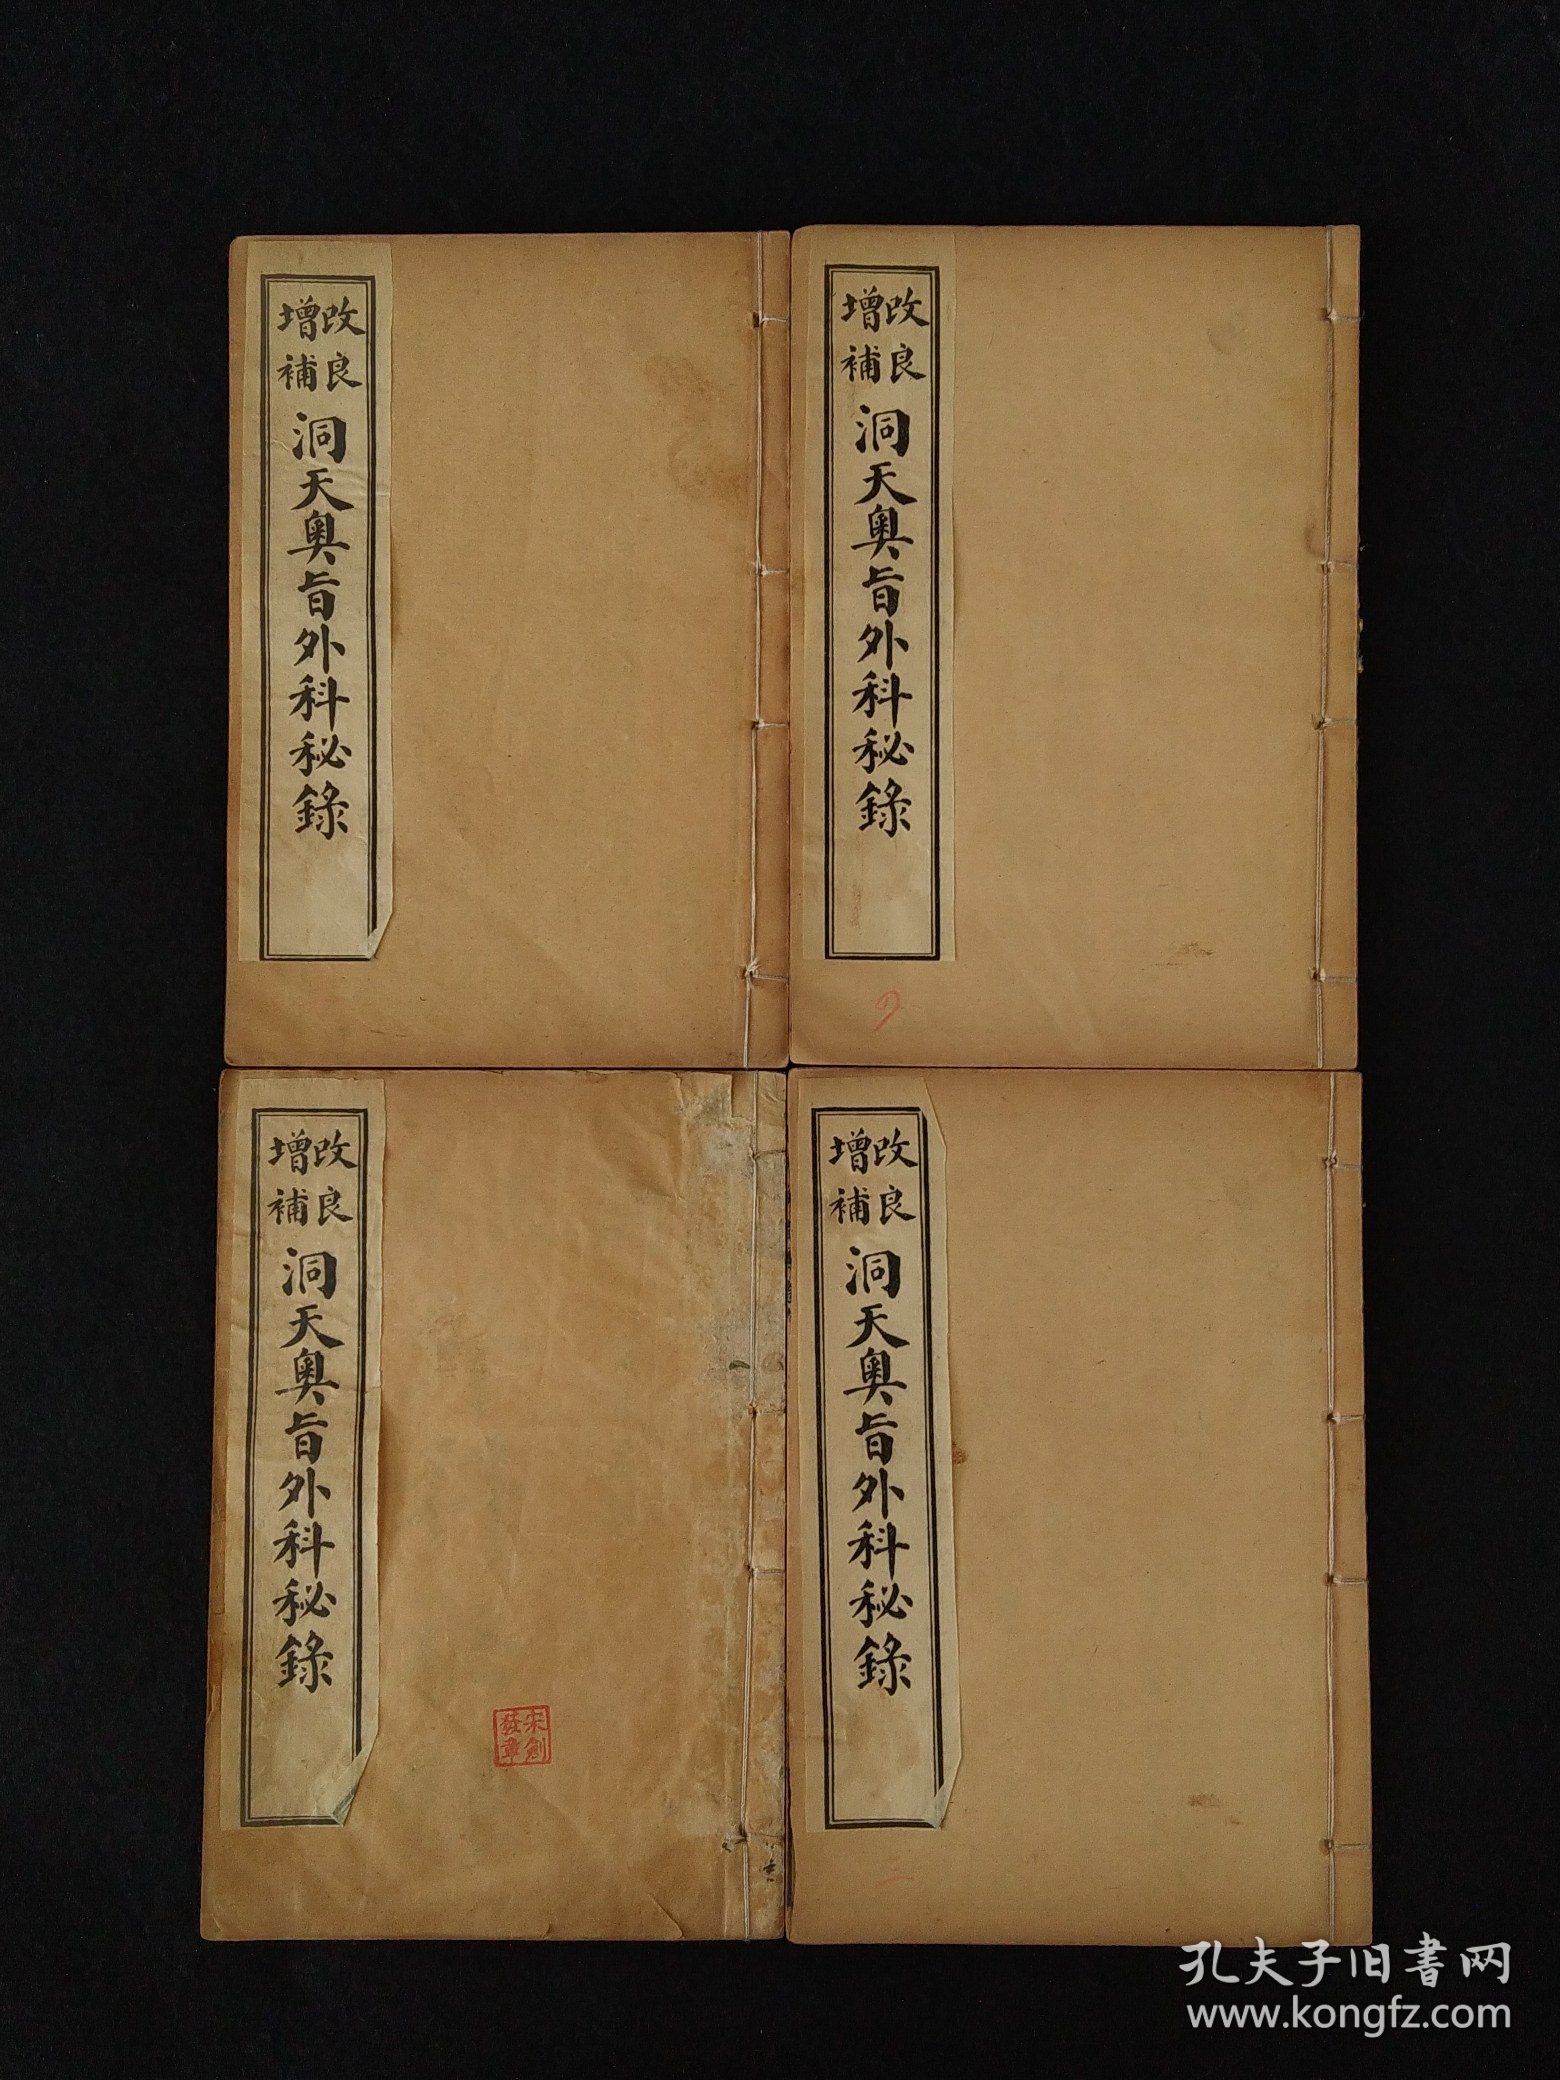 改良
增補
洞天奥旨外科秘錄
改良
增補
洞天奥旨外科秘錄
改良
增補
洞天奥旨外科秘錄
宋劍
發章
二
改良
增補
洞天奥旨外科秘錄
孔夫子旧書网
www.kongfz.com